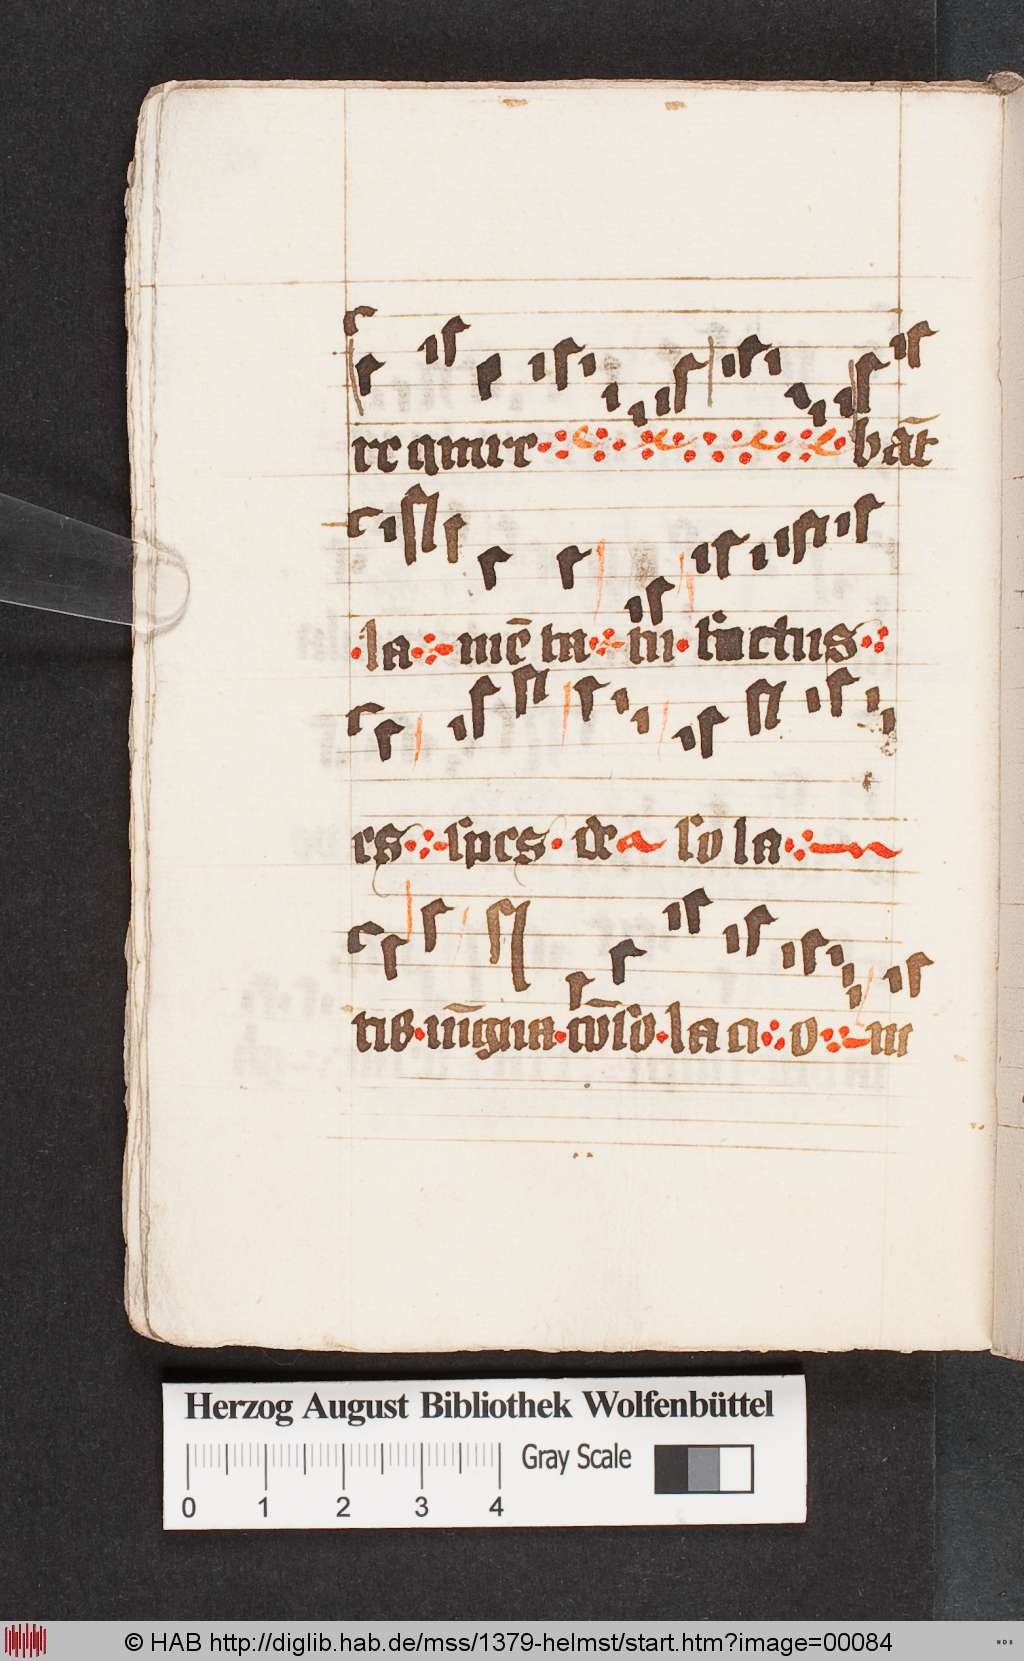 re qmire bāt
la mē ta tu luctus
es spes de so la
tib mīgna cōso la ci o m
Herzog August Bibliothek Wolfenbüttel
0 1 2 3 4 Gray Scale
© HAB http://diglib.hab.de/mss/1379-helmst/start.htm?image=00084